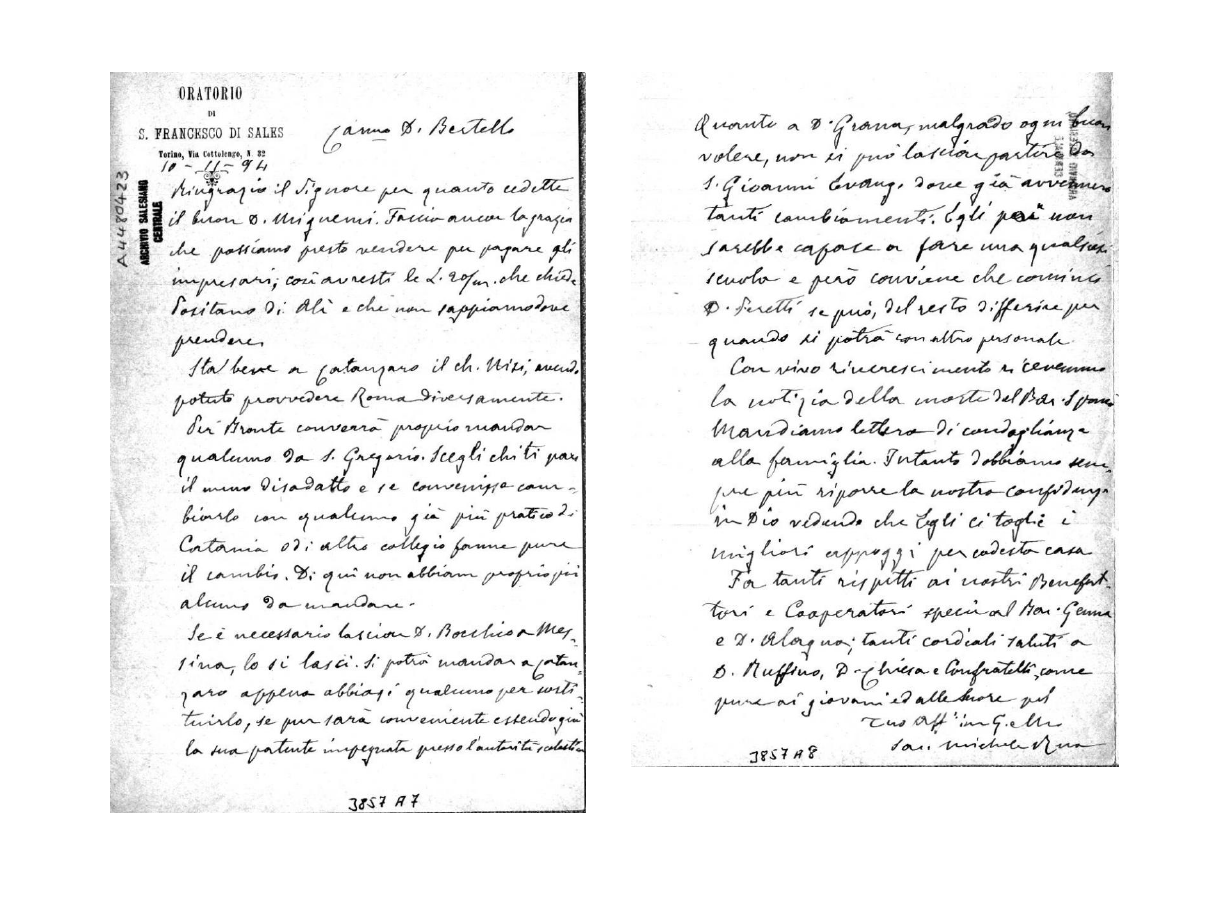 ORATORIO
DI
S. FRANCESCO DI SALES
Torino, Via Cottolengo, N. 32
10-11-94
A4480423
ARCHIVIO SALESIANO
CENTRALE
Car.mo D. Bertello
Ringrazio il Signore per quanto cedette
il buon D. Miguemi. Faccia ancor la grazia
che possiamo presto vendere per pagare gli
impresari; così avresti le L. 20/m. che chiede
Positano di Alì e che non sappiamo dove
prendere.
Sta bene a Catanzaro il ch. Nisi, avendo
potuto provvedere Roma diversamente.
Per Bronte converrà proprio mandar
qualcuno da S. Gregorio. Scegli chi ti pare
il meno disadatto e se convenisse cam-
biarlo con qualcuno già più pratico di
Catania o di altro collegio fanne pure
il cambio. Di qui non abbiam proprio più
alcuno da mandare.
Se è necessario lasciar D. Bocchio a Mes-
sina, lo si lasci. Si potrà mandar a Catan-
zaro appena abbiasi qualcuno per sosti-
tuirlo, se pur sarà conveniente essendo già
la sua patente impegnata presso l'autorità scolastica
3857 A 7
Quanto a D. Grana, malgrado ogni buon
volere, non si può lasciar partire da
S. Gioanni Evang. dove già avvennero
tanti cambiamenti. Egli poi non
sarebbe capace a fare una qualsiasi
scuola e però conviene che cominci
D. Feretti se può, del resto differire per
quando si potrà con altro personale
Con vivo rincrescimento ricevemmo
la notizia della morte del Bar.
Mandiamo lettera di condoglianza
alla famiglia. Intanto dobbiamo sem-
pre più riporre la nostra confidenza
in Dio vedendo che Egli ci toglie i
migliori appoggi per codesta casa
Fa tanti rispetti ai nostri Benefat-
tori e Cooperatori specie al Bar. Genna
e D. Alagna; tanti cordiali saluti a
D. Ruffino, D. Chiesa e Confratelli, come
pure ai giovani ed alle Suore pel
Tuo Aff. in G. e M.
Sac. Michele Rua
3857 A 8